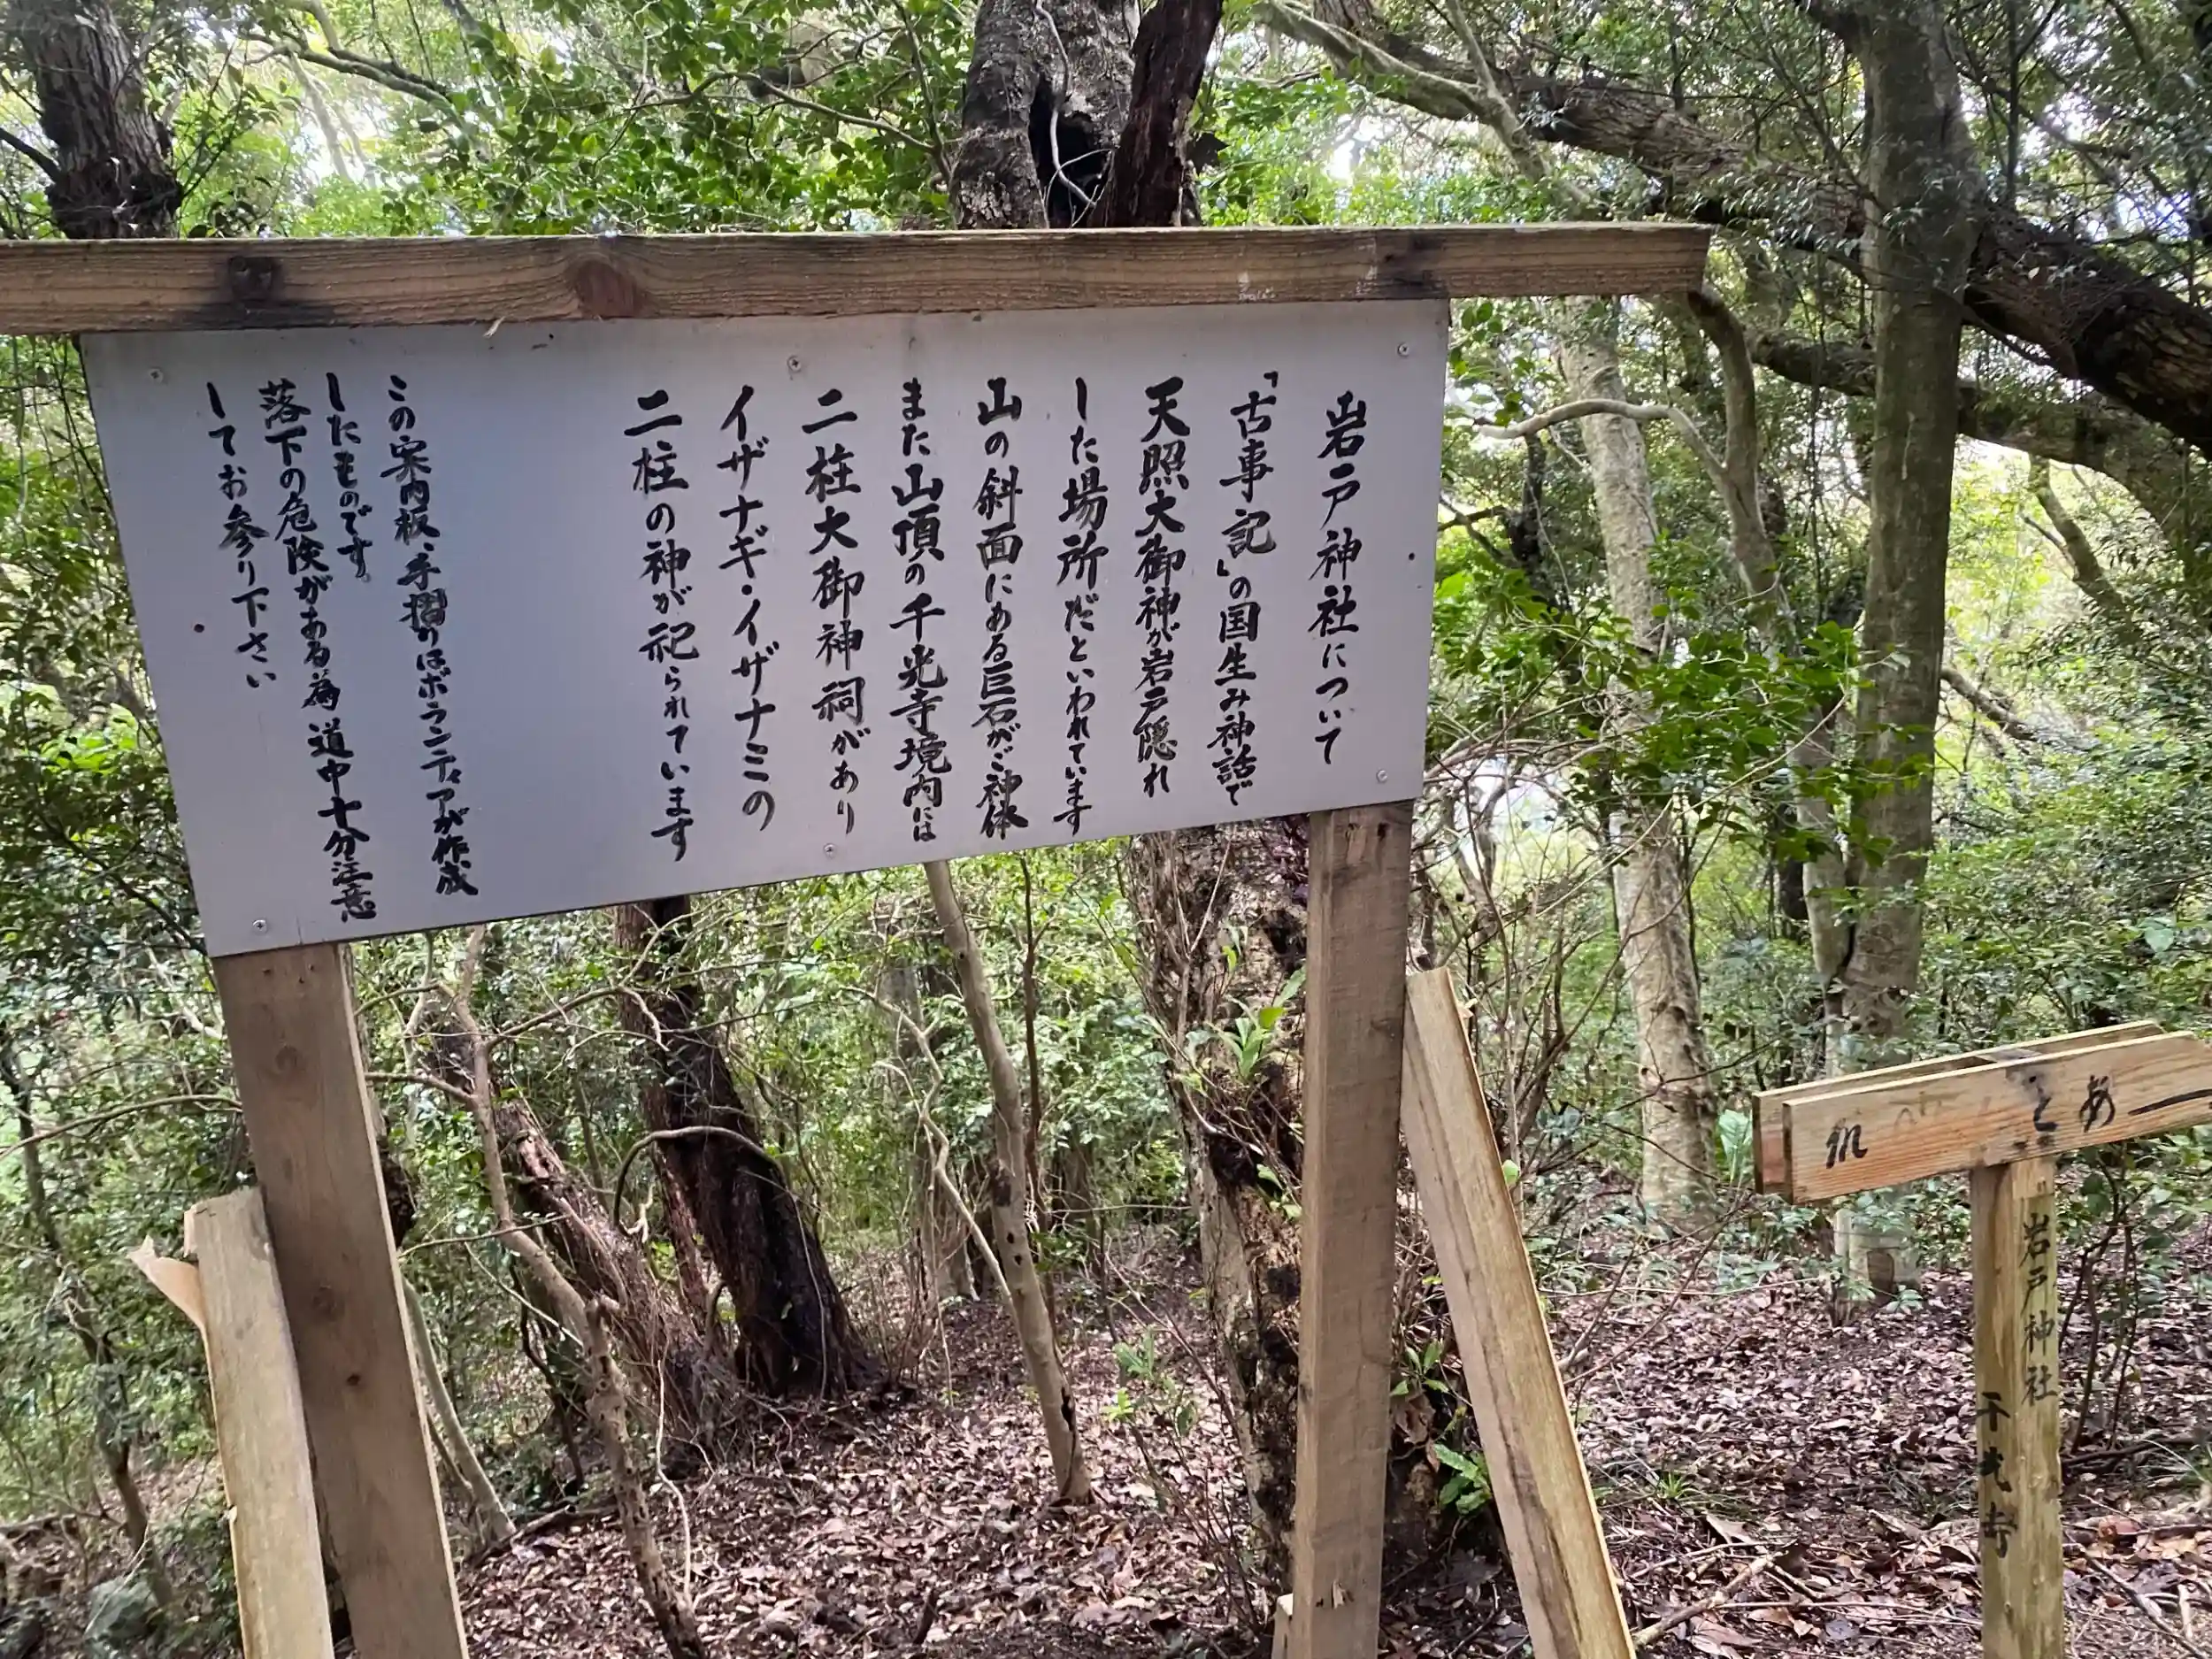 岩戸神社について
「古事記」の国生み神話で
天照大御神が岩戸隠れ
した場所だといわれています
山の斜面にある巨石がご神体
また山頂の千光寺境内には
二柱大御神祠があり
イザナギ・イザナミの
二柱の神が祀られています
この案内板、手摺りはボランティアが作成
したものです。
落下の危険がある為道中十分注意
してお参り下さい
あと
m
岩戸神社
千光寺